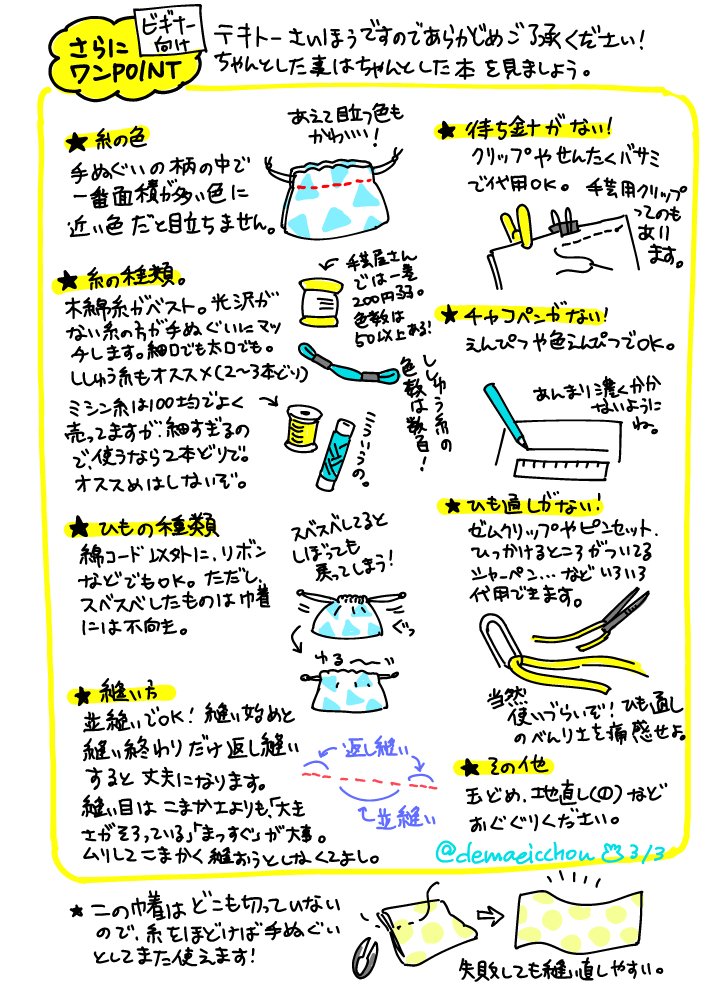 さらに
ワンPOINT
ビギナー
向け
テキトーさいほうですのであらかじめご了承ください!
ちゃんとした事はちゃんとした本を見ましょう。
★糸の色
手ぬぐいの柄の中で
一番面積が多い色に
近い色だと目立ちません。
あえて目立つ色も
かわいい!
★糸の種類。
木綿糸がベスト。光沢が
ない糸の方が手ぬぐいにマッ
チします。細口でも太口でも。
ししゅう糸もオススメ(2〜3本どり)
ミシン糸は100均でよく
売ってますが、細すぎるの
で、使うなら2本どりで。
オススメはしないぞ。
手芸屋さん
では一巻
200円弱。
色数は
50以上ある!
ししゅう糸の
色数は数百!
こういうの。
★ひもの種類
綿コード以外に、リボン
などでもOK。ただし、
スベスベしたものは巾着
には不向き。
スベスベしてると
しぼっても
戻ってしまう!
ぐっ
ゆる〜〜い
★縫い方
並縫いでOK!縫い始めと
縫い終わりだけ返し縫い
すると丈夫になります。
縫い目はこまかさよりも、「大き
さがそろっている」「まっすぐ」が大事。
ムリしてこまかく縫おうとしなくてよし。
返し縫い
並縫い
★待ち針がない!
クリップやせんたくバサミ
で代用OK。
手芸用クリップ
ってのも
あり
ます。
★チャコペンがない!
えんぴつや色えんぴつでOK。
あんまり濃くかか
ないように
ね。
★ひも通しがない!
ゼムクリップやピンセット、
ひっかけるところがついてる
シャーペン…などいろいろ
代用できます。
当然
使いづらいぞ!ひも通し
のべんりさを痛感せよ。
★その他
玉どめ、地直し(の)など
おぐぐりください。
@demaeicchou 3/3
★この巾着はどこも切っていない
ので、糸をほどけば手ぬぐい
としてまた使えます!
失敗しても縫い直しやすい。